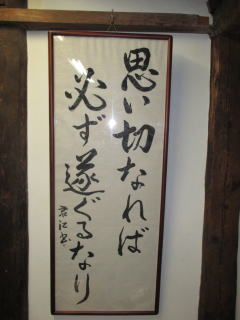 思い切なれば
必ず遂ぐるなり
君江書